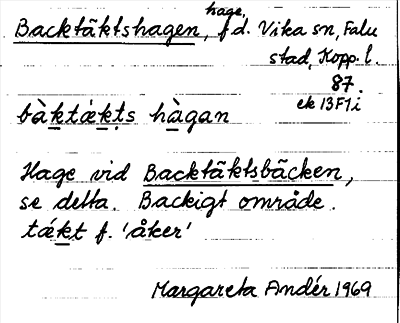 Backtäktshagen, hage, f.d. Vika sn, Falu
stad, Kopp. l.
87.
ek 13F1i
bàktǽkṭs hàgan
Hage vid Backtäktsbäcken,
se detta. Backigt område.
tǽkt f. 'åker'
Margareta Andér 1969